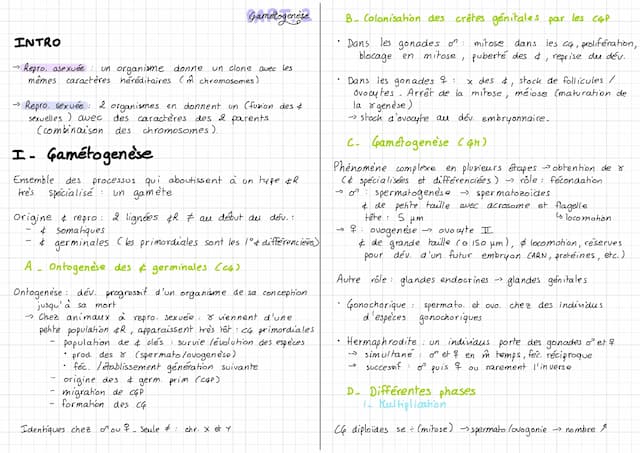 PART 2
Gamétogenèse
INTRO
→ Repro. asexuée : un organisme donne un clone avec les
mêmes caractères héréditaires (m̂ chromosomes)
→ Repro. sexuée : 2 organismes en donnent un (fusion des ¢
sexuelles) avec des caractères des 2 parents
(combinaison des chromosomes).
I - Gamétogenèse
Ensemble des processus qui aboutissent à un type ¢R
très spécialisé : un gamète
Origine ¢ repro : 2 lignées ¢R ≠ au début du dév. :
- ¢ somatiques
- ¢ germinales (les primordiales sont les 1° ¢ différenciées)
A - Ontogenèse des ¢ germinales (CG)
Ontogenèse : dév. progressif d'un organisme de sa conception
jusqu'à sa mort
→ Chez animaux à repro. sexuée : ɤ viennent d'une
petite population ¢R, apparaissent très tôt : CG primordiales
- population de ¢ clés : survie/évolution des espèces
• prod des ɤ (spermato/ovogenèse)
• féc. /établissement génération suivante
- origine des ¢ germ prim (CGP)
- migration de CGP
- formation des CG
Identiques chez ♂ ou ♀ - seule ≠ : chr. X et Y
B - Colonisation des crêtes génitales par les CGP
• Dans les gonades ♂ : mitose dans les CG, prolifération,
blocage en mitose, puberté des ¢, reprise du dév.
• Dans les gonades ♀ : x des ¢, stock de follicules /
ovocytes. Arrêt de la mitose, méiose (maturation de
la ɤgenèse)
→ stock d'ovocyte au dév. embryonnaire.
C - Gamétogenèse (GM)
Phénomène complexe en plusieurs étapes → obtention de ɤ
(¢ spécialisées et différenciées) → rôle : fécondation
→ ♂ : spermatogenèse → spermatozoïdes
¢ de petite taille avec acrosome et flagelle
tête : 5 μm ↳ locomotion
→ ♀ : ovogenèse → ovocyte II
¢ de grande taille (ø 150 μm), ∅ locomotion, réserves
pour dév. d'un futur embryon (ARN, protéines, etc.)
Autre rôle : glandes endocrines → glandes génitales
• Gonochorique : spermato. et ovo. chez des individus
d'espèces gonochoriques
• Hermaphrodite : un individus porte des gonades ♂ et ♀
→ simultané : ♂ et ♀ en m̂ temps, féc. réciproque
→ successif : ♂ puis ♀ ou rarement l'inverse
D - Différentes phases
1 - Multiplication
CG diploïdes se ÷ (mitose) → spermato/ovogonie → nombre ↗